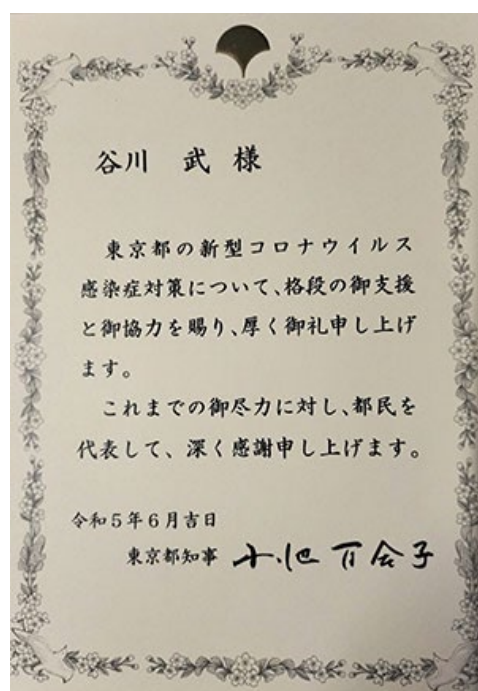 谷川 武 様
東京都の新型コロナウイルス
感染症対策について、格段の御支援
と御協力を賜り、厚く御礼申し上げ
ます。
これまでの御尽力に対し、都民を
代表して、深く感謝申し上げます。
令和5年6月吉日
東京都知事 小池百合子